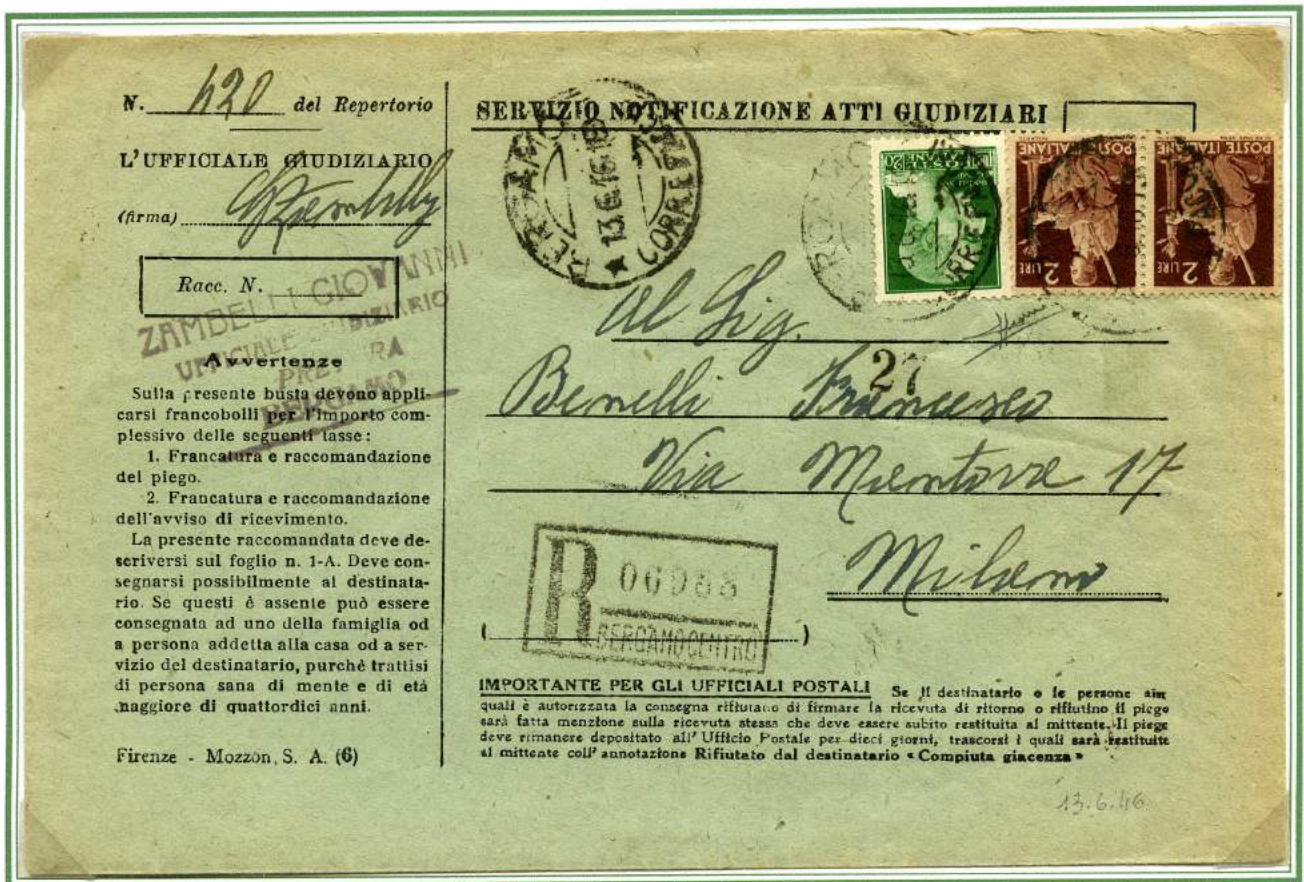 N. 420 del Repertorio
L'UFFICIALE GIUDIZIARIO
(firma)
Racc. N.
ZAMBELLI GIOVANNI
UFFICIALE GIUDIZIARIO
PRETURA
BERGAMO
Avvertenze
Sulla presente busta devono appli-
carsi francobolli per l'importo com-
plessivo delle seguenti tasse:
1. Francatura e raccomandazione
del piego.
2. Francatura e raccomandazione
dell'avviso di ricevimento.
La presente raccomandata deve de-
scriversi sul foglio n. 1-A. Deve con-
segnarsi possibilmente al destinata-
rio. Se questi è assente può essere
consegnata ad uno della famiglia od
a persona addetta alla casa od a ser-
vizio del destinatario, purché trattisi
di persona sana di mente e di età
maggiore di quattordici anni.
Firenze - Mozzon, S. A. (6)
SERVIZIO NOTIFICAZIONE ATTI GIUDIZIARI
BERGAMO
13.6.46
CORRISP
POSTE ITALIANE
2 LIRE
POSTE ITALIANE
2 LIRE
Al Sig.
27
Benelli Francesco
Via Mentore 17
Milano
R 06988
BERGAMO CENTRO
(
)
IMPORTANTE PER GLI UFFICIALI POSTALI Se il destinatario o le persone aim
quali è autorizzata la consegna rifiutano di firmare la ricevuta di ritorno o rifiutino il piego
sarà fatta menzione sulla ricevuta stessa che deve essere subito restituita al mittente. Il piego
deve rimanere depositato all' Ufficio Postale per dieci giorni, trascorsi i quali sarà restituito
al mittente coll' annotazione Rifiutato dal destinatario « Compiuta giacenza »
13.6.46